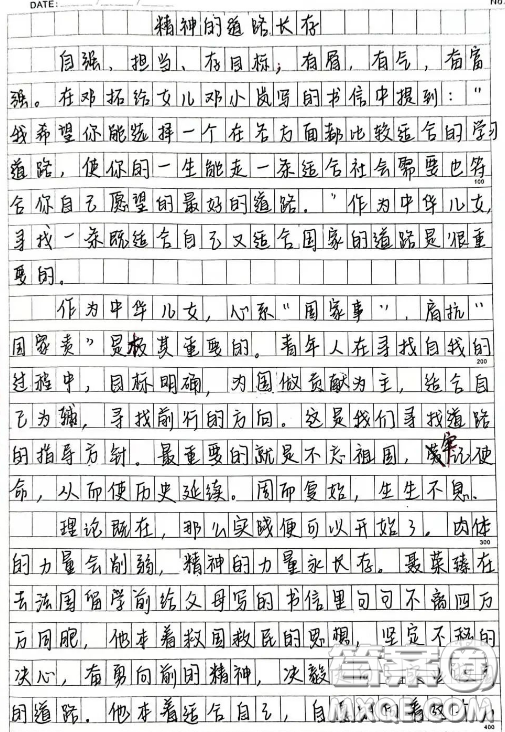 DATE:
No.
精神的道路长存
自强、担当、存目标；有眉，有气，有富
强。在邓拓给女儿邓小岚写的书信中提到："
我希望你能选择一个在各方面都比较适合的学习
道路，使你的一生能走一条适合社会需要也符
100
合你自己愿望的最好的道路。"作为中华儿女，
寻找一条既适合自己又适合国家的道路是很重
要的。
作为中华儿女，心系"国家事"，肩抗"
国家责"是极其重要的。青年人在寻找自我的
200
过程中，目标明确，为国做贡献为主，适合自
己为辅，寻找前行的方向。这是我们寻找道路
的指导方针。最重要的就是不忘祖国，牢记使
命，从而使历史延续。周而复始，生生不息。
理论既在，那么实践便可以开始了。肉体
300
的力量会削弱，精神的力量永长存。聂荣臻在
去法国留学前给父母写的书信里句句不离四万
万同胞，他本着救国救民的思想，坚定不移的
决心，有勇向前的精神，决毅
的道路。他本着适合自己，自
400
答案圈